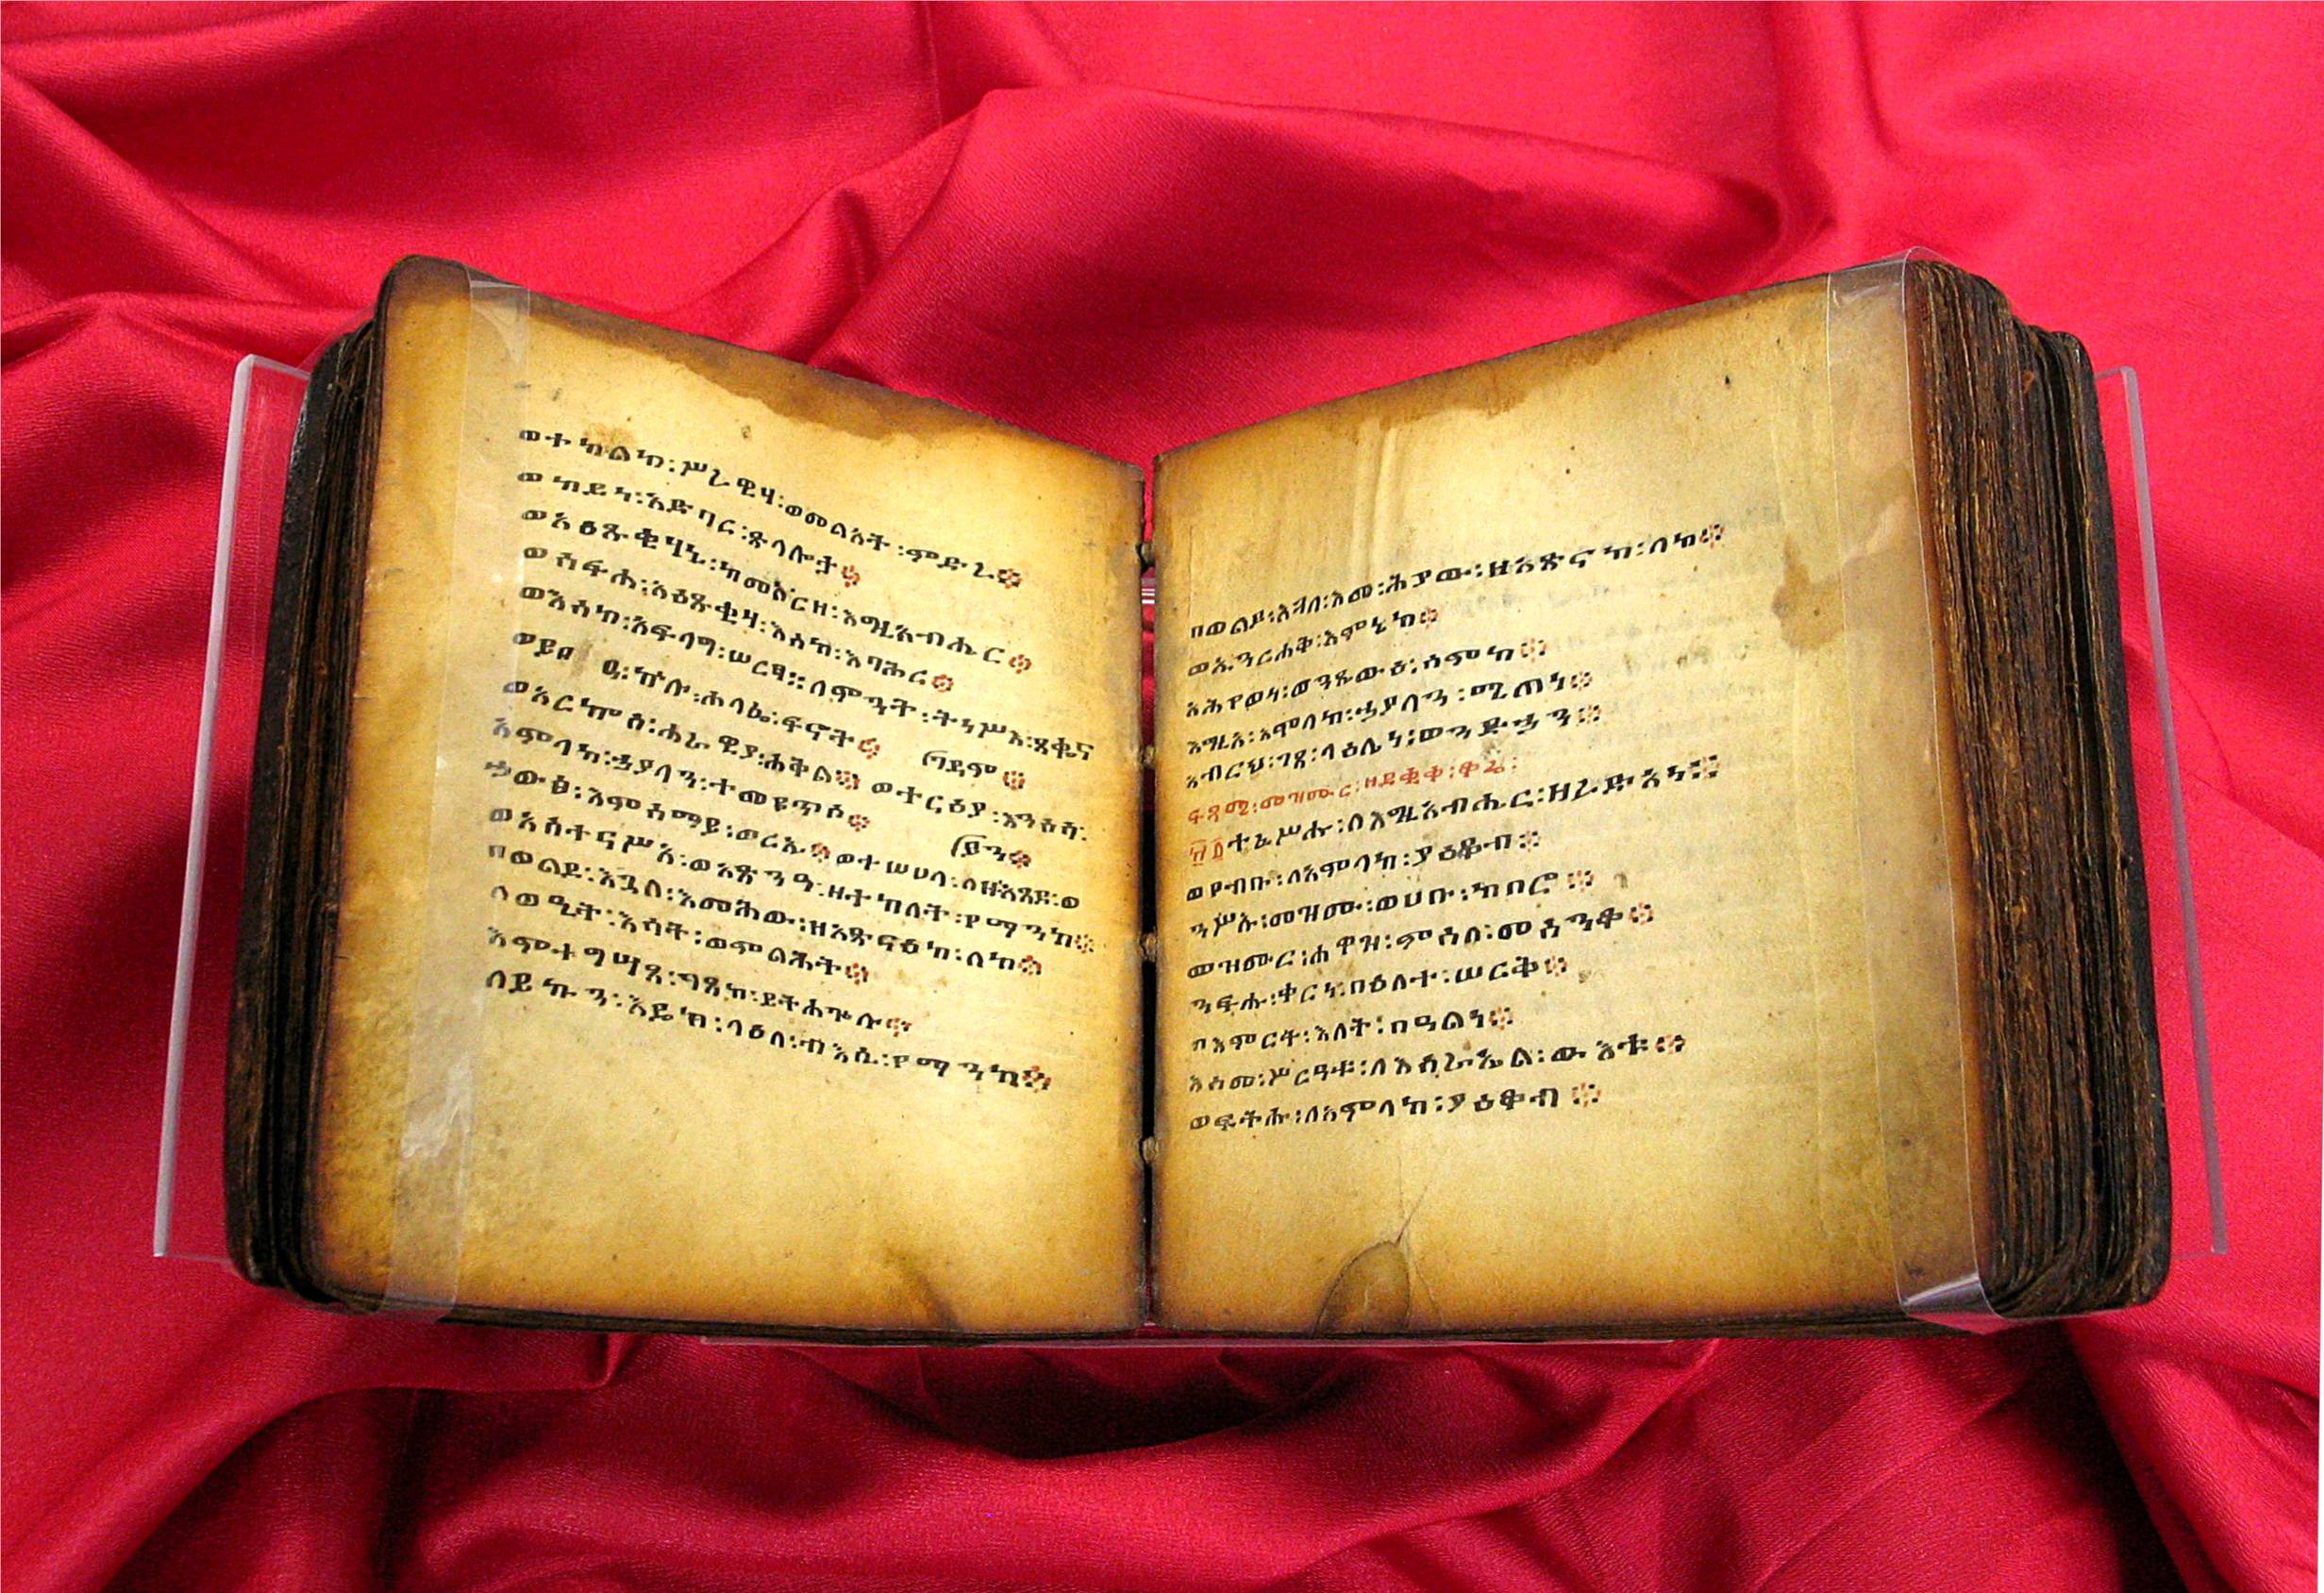 ወተከልከ፡ሥረዊሃ፡ወመልአት፡ምድረ።
ወከደነ፡አድባረ፡ጽላሎታ።
ወአዕጹቂሃኒ፡ከመ፡አርዘ፡እግዚአብሔር።
ወሰፍሐ፡አዕጹቂሃ፡እስከ፡እባሕረ።
ወእስከ፡አፍላግ፡ሠርፃ። በምንት፡ትነሥእ፡ጸቁና
ኵሉ፡ኀላፌ፡ፍኖት። ገዳም።
ወአርኰሰ፡ሐራውያ፡ሐቅል። ወተርዕያ፡እንሰሳ፡
አምላከ፡ኃያላን፡ተመየጥሶ። ይን።
ነውፅ፡እምሰማይ፡ወረኢ። ወተሠሀላ፡ለዛአጸደ፡ወ
ወአስተናሥአ፡ወአጽንዓ፡ዘተከለት፡የማንከ።
በወልደ፡እጓለ፡እመሕው፡ዘአጽናዕከ፡ለከ።
ለወዒት፡እሳት፡ወምልሕት።
እምተግሣጸ፡ገጽከ፡ይትሐጐሉ።
ለይኩን፡እዴከ፡ላዕለ፡ብእሲ፡የማንከ።
በወልደ፡እጓለ፡እመ፡ሕያው፡ዘአጽናከ፡ለከ።
ወኢንርሐቅ፡እምኔከ።
አሕየወነ፡ወንጼውዕ፡ስምከ።
እግዚአ፡አምላከ፡ኃያላን፡ሚጠነ።
አብርህ፡ገጸ፡ላዕሌነ፡ወንድኃን።
ፍጻሜ፡መዝሙር፡ዘደቂቀ፡ቆሬ፡
፹፬ተፈሥሑ፡በእግዚአብሔር፡ዘረድአነ።
ወየብቡ፡ለአምላከ፡ያዕቆብ።
ንሥኡ፡መዝሙ፡ወሀቡ፡ከበሮ።
መዝሙር፡ሐዋዝ፡ምስለ፡መሰንቆ።
ንፍሑ፡ቀርነ፡በዕለተ፡ሠርቅ።
በእምርት፡እለት፡በዓልነ።
እስመ፡ሥርዓቱ፡ለእስራኤል፡ውእቱ።
ወፍትሑ፡ለአምላከ፡ያዕቆብ።